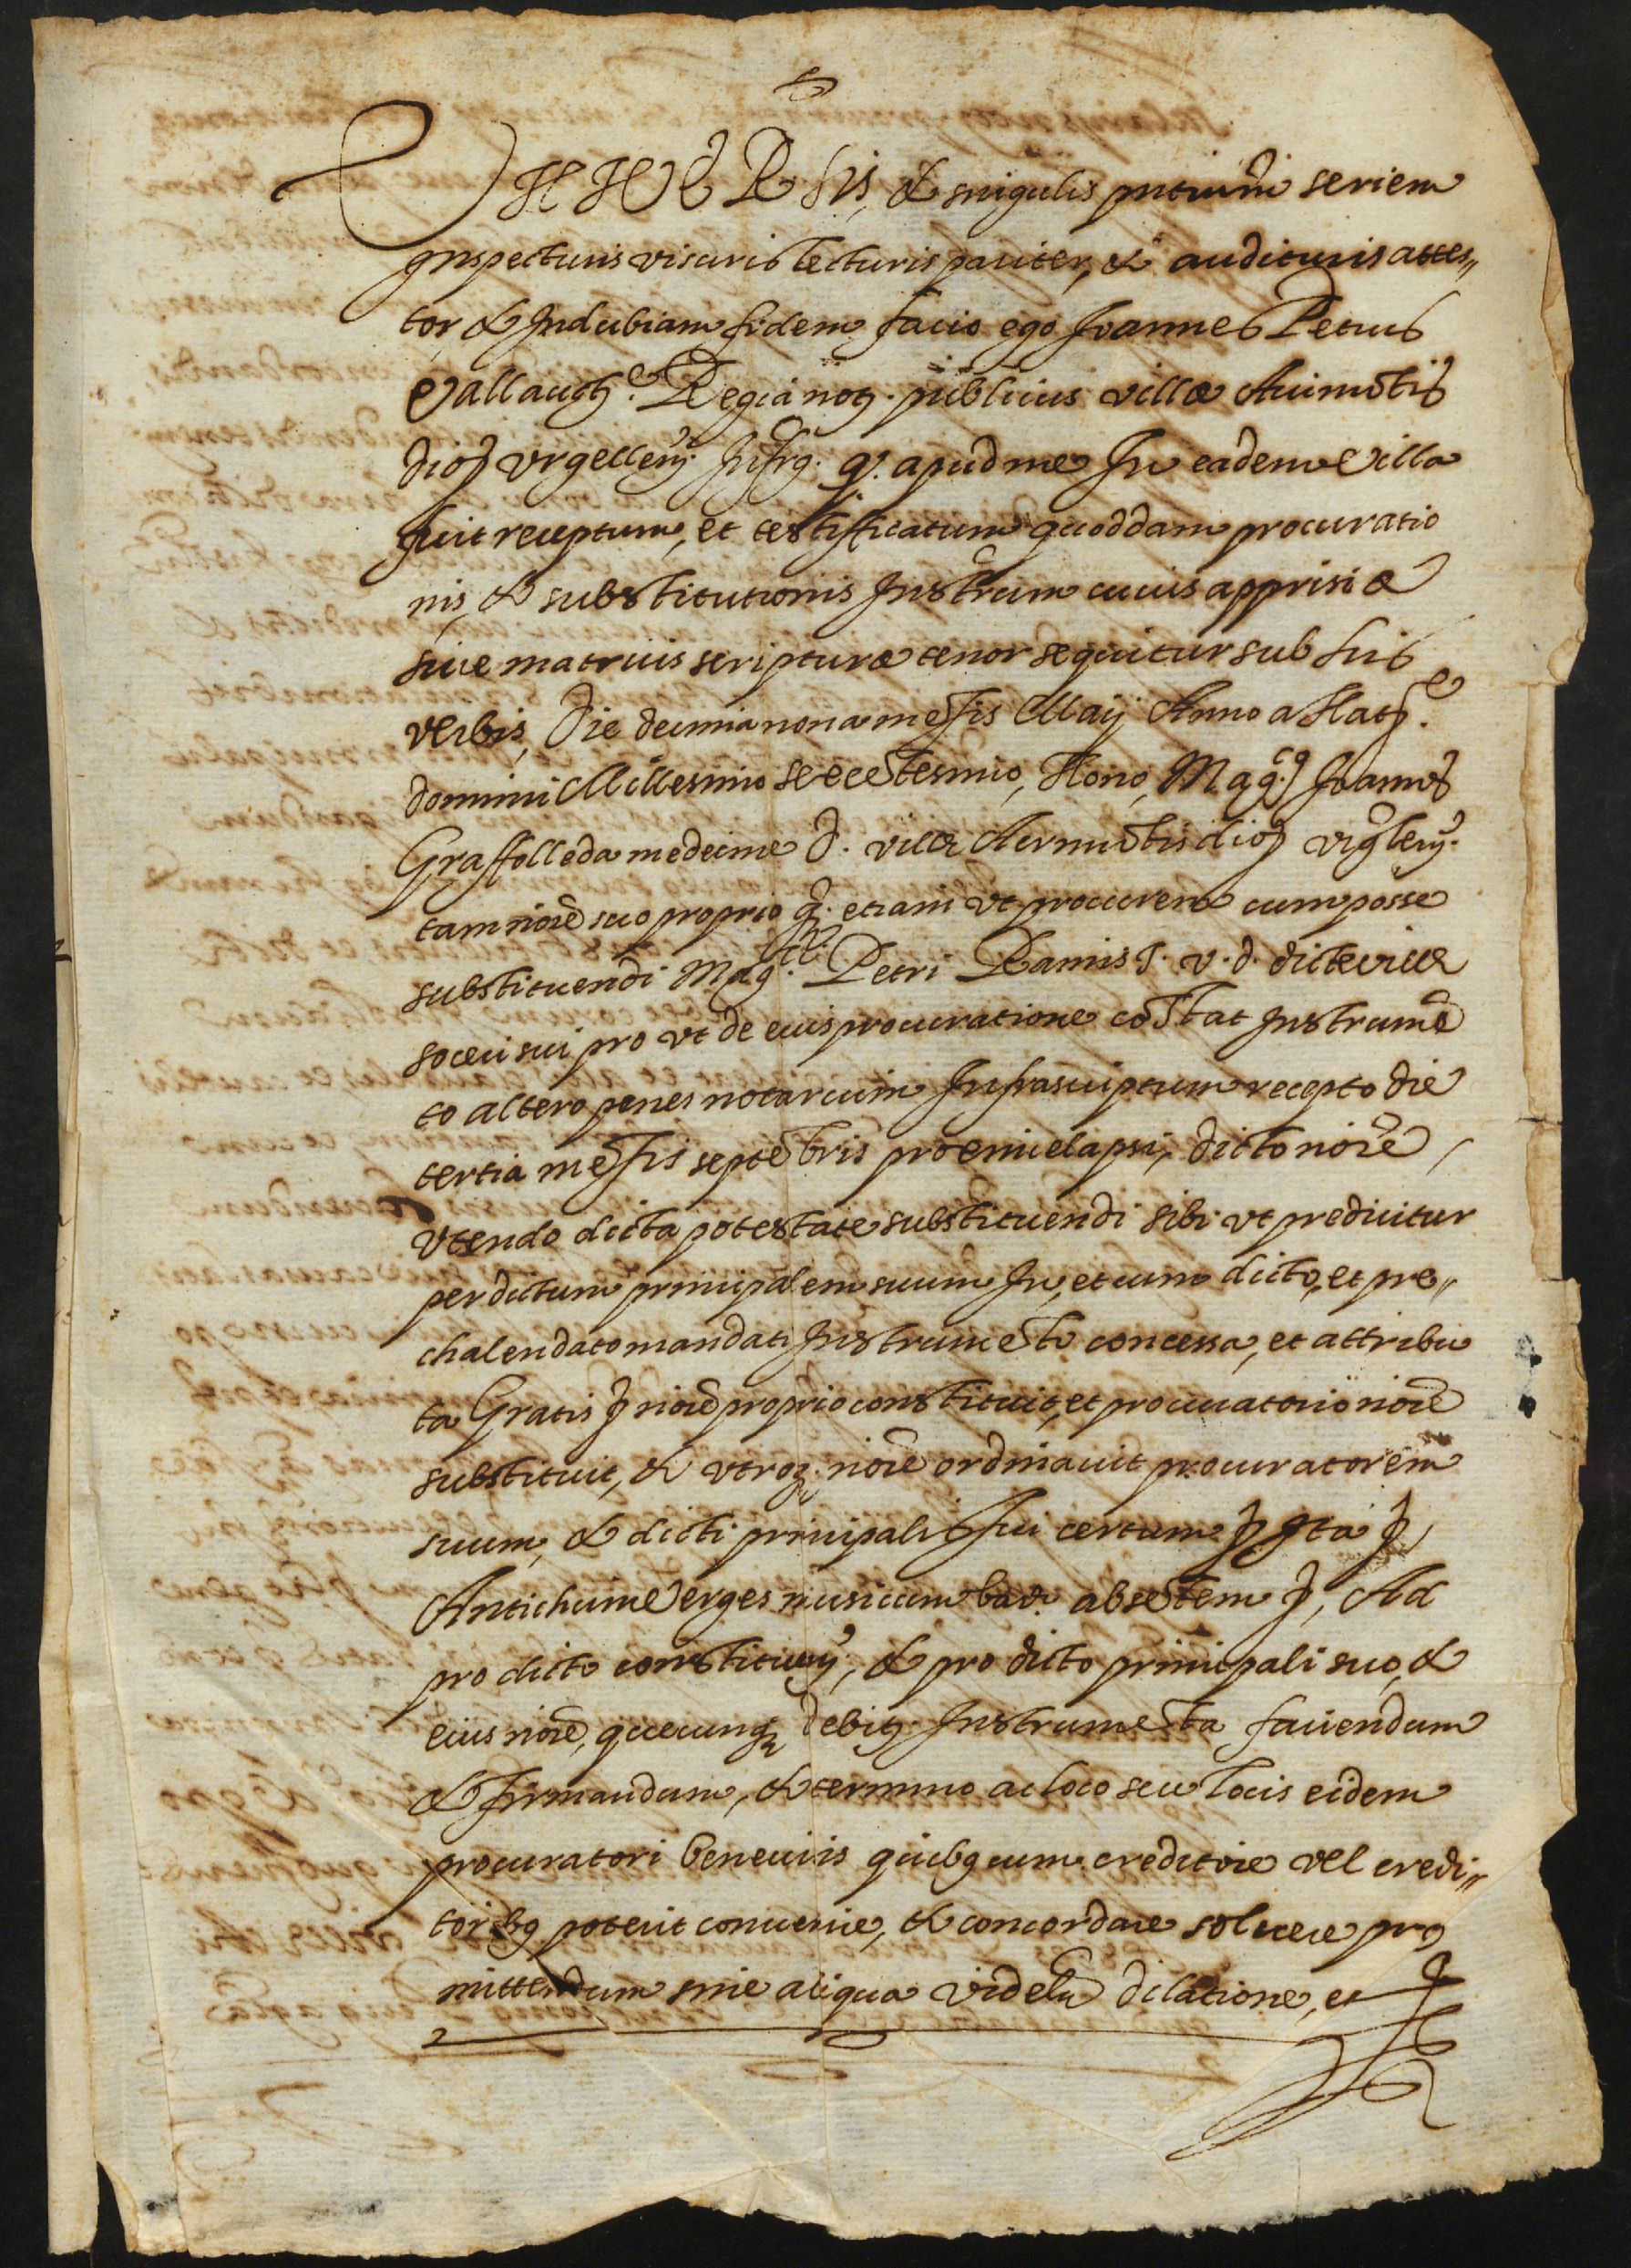 VNIVERSis, & singulis pntium seriem
Inspecturis visuris lecturis pariter, & audituris attes„
tor & Indubiam fidem facio ego Joannes Petrus
Vallauch. Regia not. publicus villæ Acrimōtis
dioc̄ Vrgelleñ. q. apud me In eadem villa
fuit receptum, et testificatum quoddam procuratio
nis, & substitutionis Instrum cuius apprisiæ
siue matricis scripturæ tenor sequitur sub his
verbis, Die decimanona mēsis Maij Anno a Nat.
domini Millesimo sexcētesimo, Nono, Magcus Joannes
Graffolleda medecine d. ville Acrimōtis dioc̄ Vrgleñ.
tam noīe suo proprio q. etiam vt procurem cum posse
substituendi Mag. Petri Ramis J. v. d. dicte ville
soceri sui pro vt de eius procuratione cōstat Instrumē
to altero penes notarium Infrascriptum recepto die
tertia mēsis septēbris proxime elapsi, dicto noīe
Vtendo dicta potestate substituendi sibi vt predicitur
per dictum principalem suum In, et cum dicto, et pre„
chalendato mandati Instrumēto concessa, et attribu
ta Gratis noīe proprio constituit, et procuratorio noīe
substituit, & vtroq. noīe ordinauit procuratorem
suum, & dicti principalis sui certum ita
Antichum Verges musicum absētem, Ad
pro dicto constituen., & pro dicto principali suo, &
eius noīe, quecunq debit. Instrumēta faciendum
& firmandum, & termino ac loco seu locis eidem
procuratori beneuisis quibq cum creditore vel credi„
toribq poterit conuenire, & concordare soluere pro
mittendum sine aliqua videlt dilatione, et